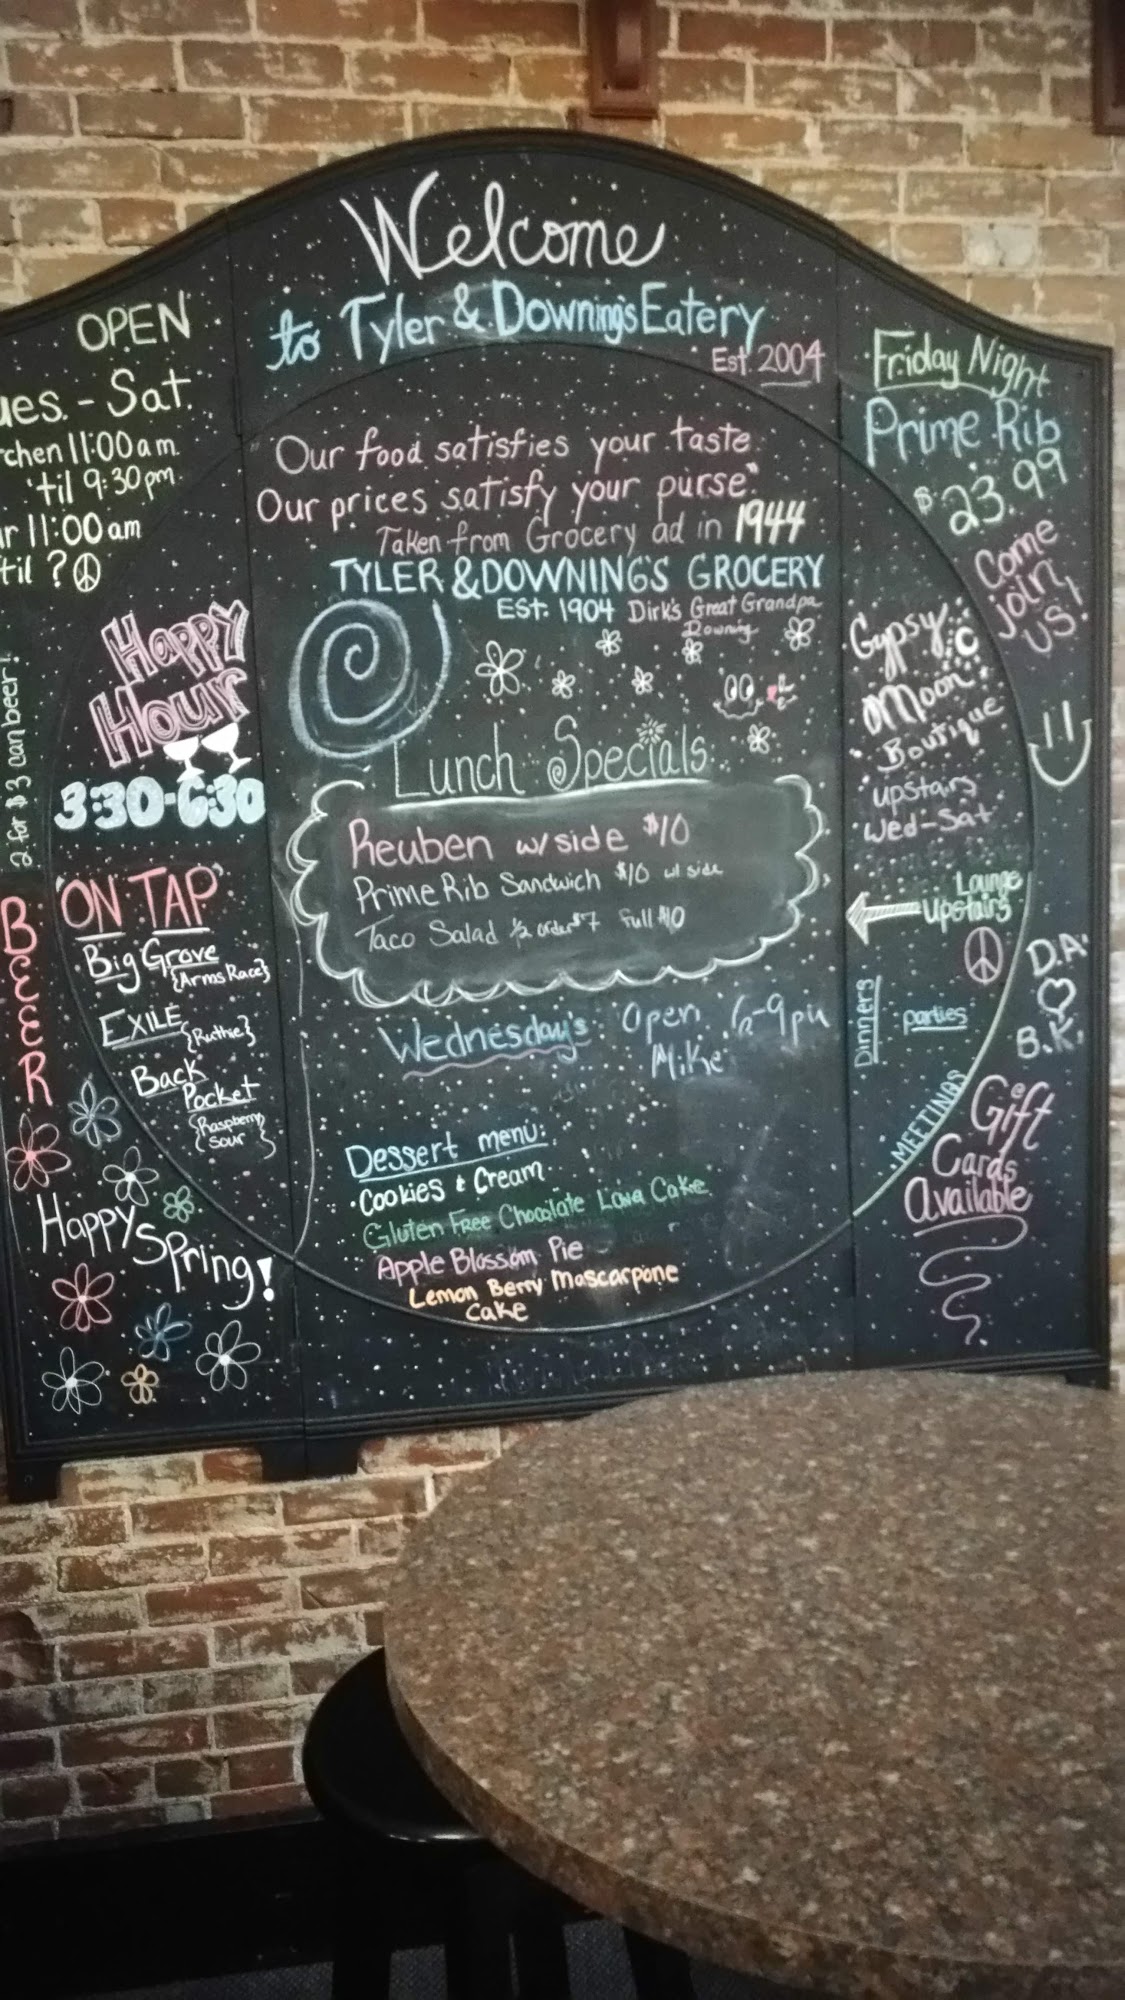 Welcome
to Tyler & Downing's Eatery
Est. 2004
OPEN
ues. - Sat.
chen 11:00 am
'til 9:30 pm
r 11:00 am
til ?
Happy
Hour
3:30-6:30
2 for $3 can beer!
"ON TAP"
BEER
Big Grove
{Arms Race}
EXILE
{Ruthie}
Back
Pocket
{Raspberry
Sour}
Happy
Spring!
Our food satisfies your taste.
Our prices satisfy your purse"
Taken from Grocery ad in 1944
TYLER & DOWNING'S GROCERY
EST. 1904 Dirk's Great Grandpa
Downing
Lunch Specials
Reuben w/ side $10
Prime Rib Sandwich $10 w/ side
Taco Salad 1/2 order $7 Full $10
Wednesday's: Open 6-9pm
Mike
Dessert menu:
· Cookies & Cream
Gluten Free Chocolate Lava Cake
Apple Blossom Pie
Lemon Berry Mascarpone
Cake
Friday Night
Prime Rib
$23.99
Come
join
us!
Gypsy
Moon
Boutique
upstairs
Wed-Sat
Lounge
Upstairs
Dinners
parties
MEETINGS
D.A.
B.K.
Gift
Cards
Available